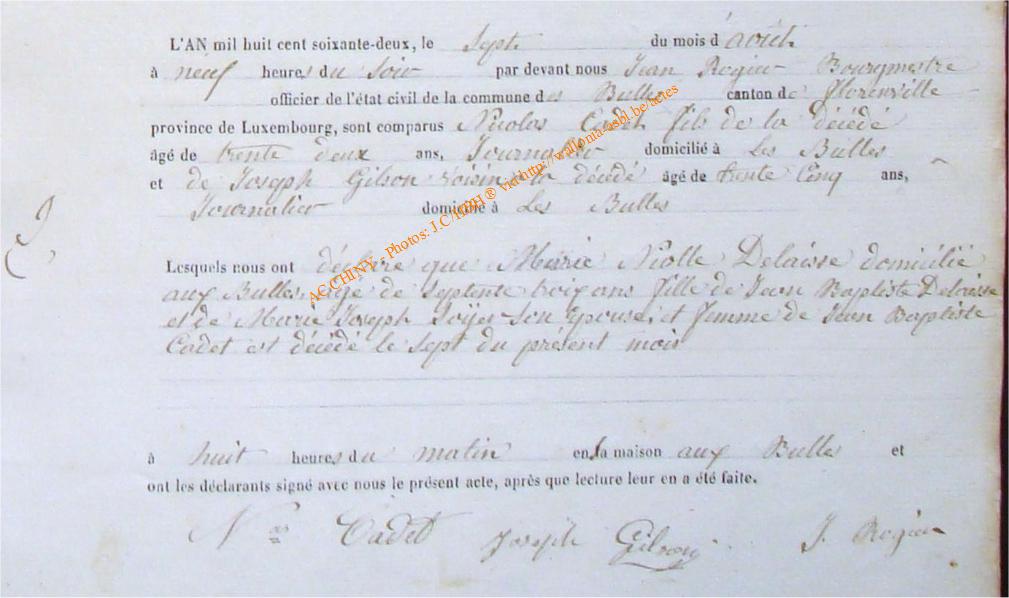 L'AN mil huit cent soixante-deux, le Sept du mois d'août
à neuf heures du Soir par devant nous Jean Rogier Bourgmestre
officier de l'état civil de la commune des Bulles canton de florenville
province de Luxembourg, sont comparus Nicolas Cadet fils de la décédé
âgé de trente deux ans, Journalier domicilié à Les Bulles
et de Joseph Gilson voisin a la décédé âgé de trente Cinq ans,
Journalier domicilié à Les Bulles
Lesquels nous ont déclaré que Marie Delaisse domicilié
aux Bulles, age de Septente troix ans fille de Jean Baptiste Delaisse
et de Marie Joseph son épouse, et femme de Jean Baptiste
Cadet est décédé le Sept du présent mois
à huit heures du matin en sa maison aux Bulles et
ont les déclarants signé avec nous le présent acte, après que lecture leur en a été faite.
Nas Cadet Joseph Gilson J. Rogier
AC CHINY - Photos: J.C/ ® via http://wallonia-asbl.be/actes